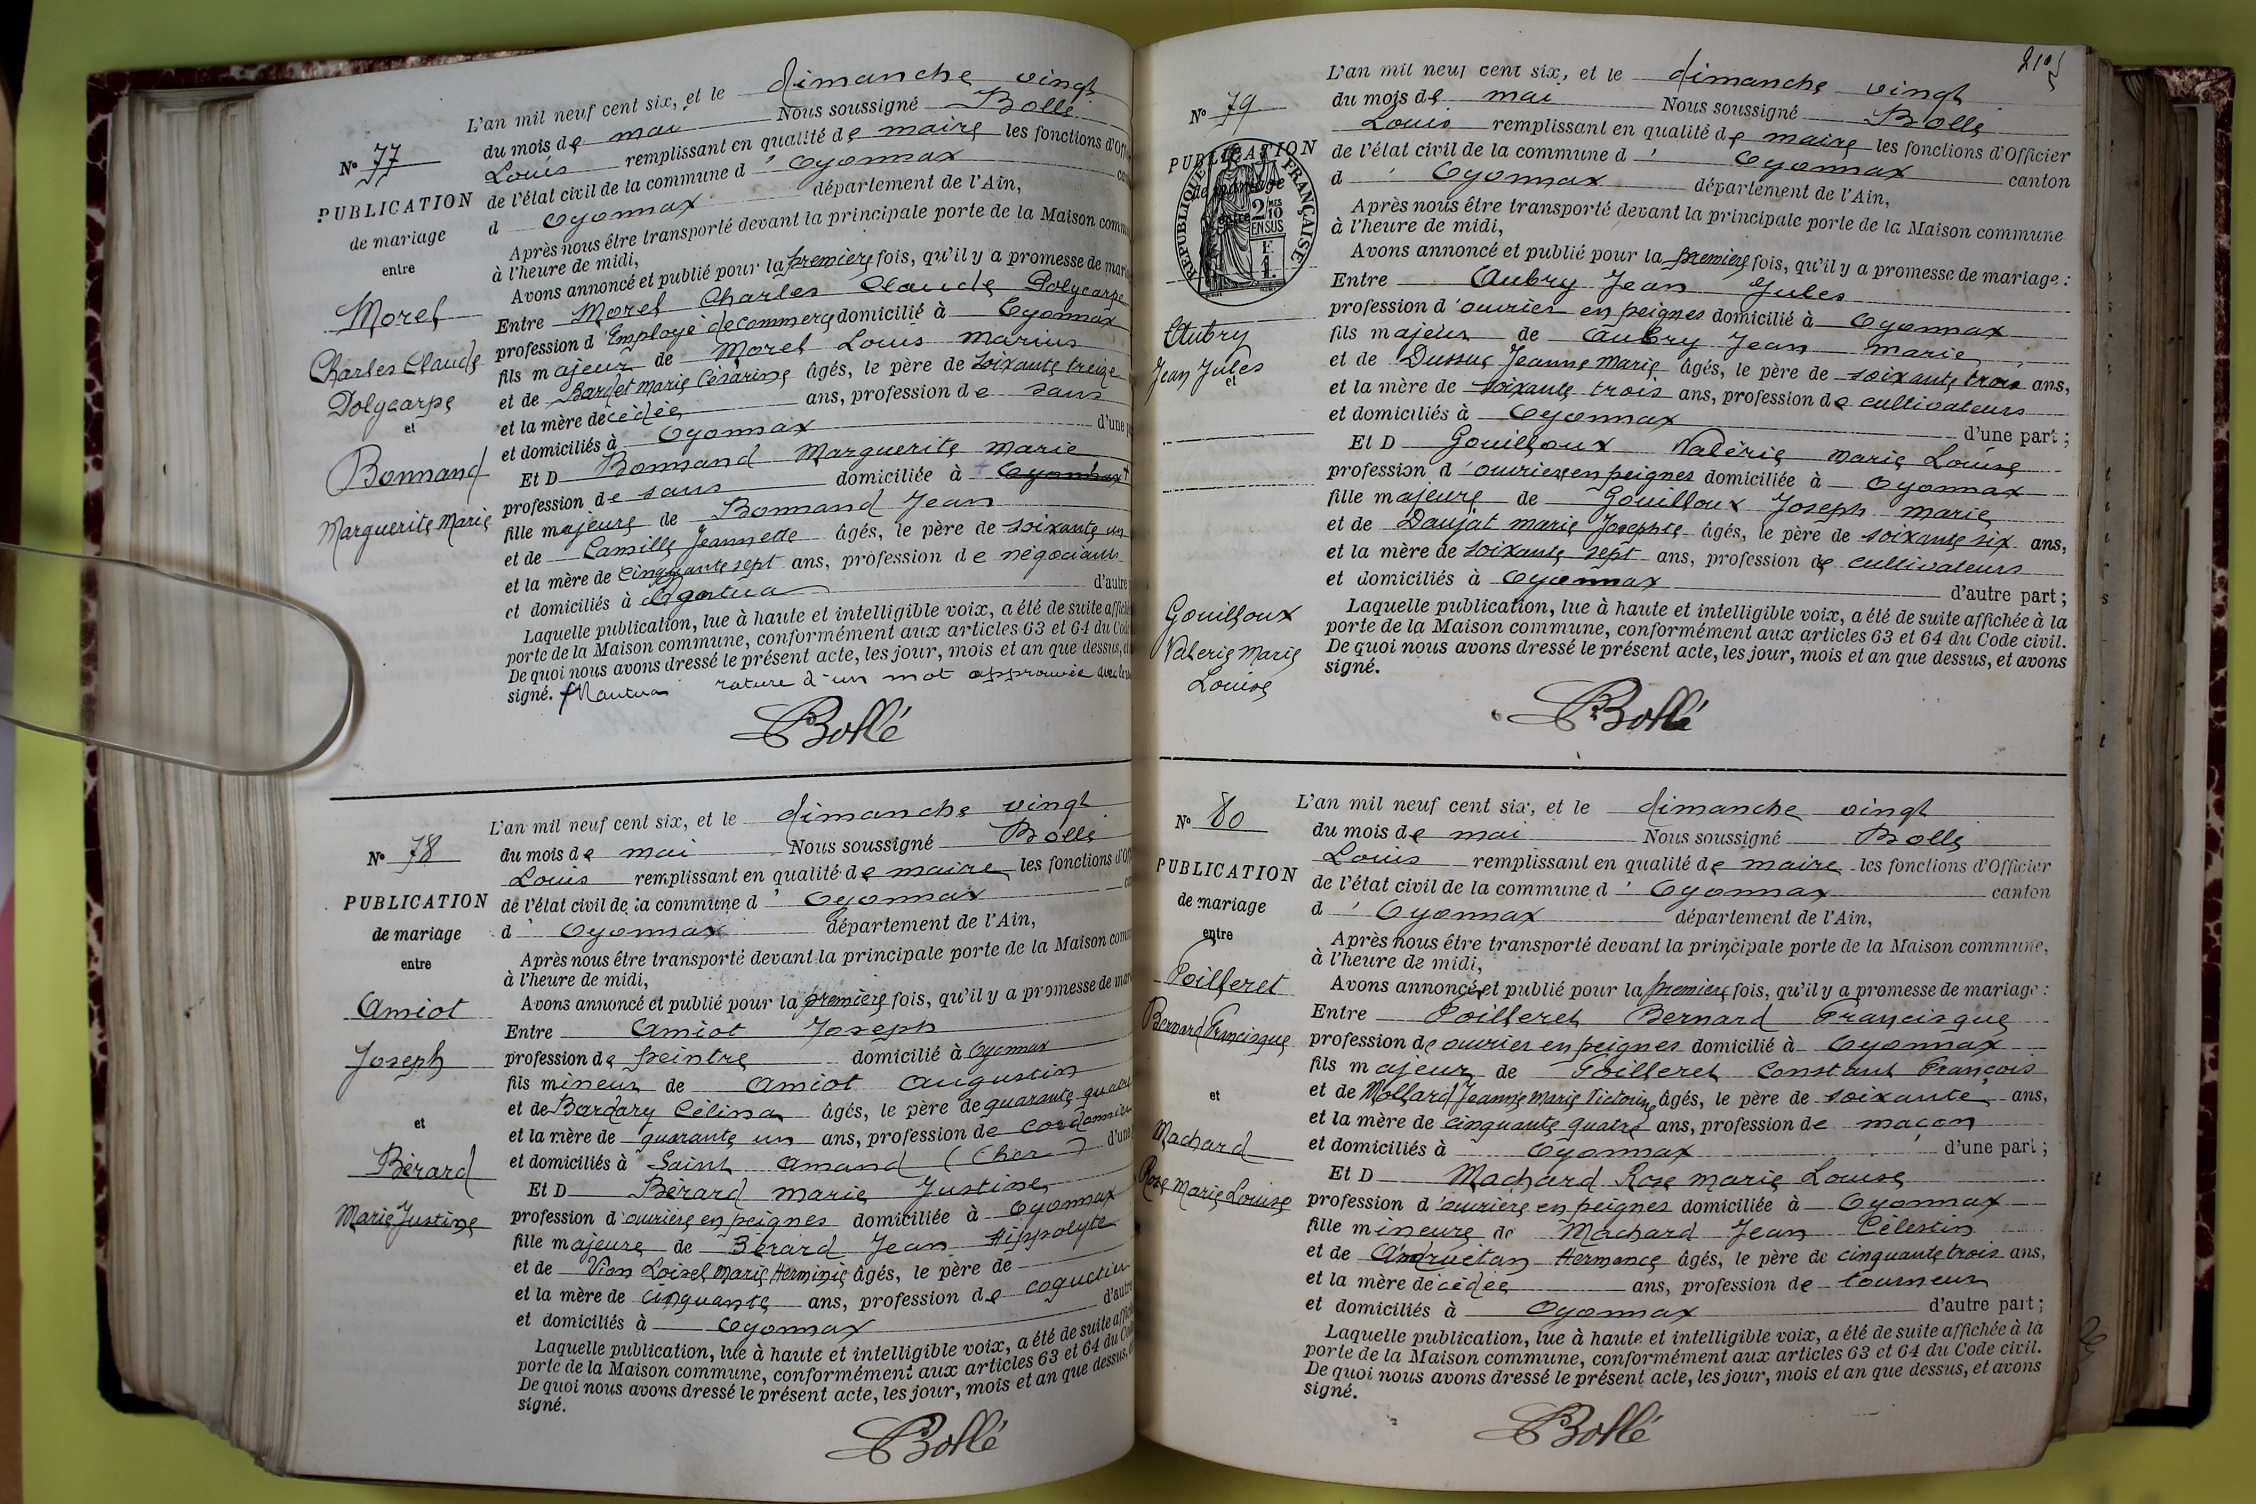 L'an mil neuf cent six, et le dimanche vingt
du mois de mai Nous soussigné Bollé
Louis remplissant en qualité de maire les fonctions d'Off
de l'état civil de la commune d' Oyonnax
d Oyonnax département de l'Ain,
Après nous être transporté devant la principale porte de la Maison comm
à l'heure de midi,
Avons annoncé et publié pour la première fois, qu'il y a promesse de mar
Entre Morel Charles Claude Polycarpe
profession d'Employé de commerce domicilié à Oyonnax
fils majeur de Morel Louis Marius
et de Bardet Marie Césarine âgés, le père de soixante treize
et la mère décédée ans, profession de sans
et domiciliés à Oyonnax d'une p
Et D Bonnand Marguerite Marie
profession de sans domiciliée à + Oyonnax +
fille majeure de Bonnand Jean
et de Camille Jeannette âgés, le père de soixante un
et la mère de cinquante sept ans, profession de négociants
et domiciliés à Nantua d'autre
Laquelle publication, lue à haute et intelligible voix, a été de suite affiché
porte de la Maison commune, conformément aux articles 63 et 64 du Code
De quoi nous avons dressé le présent acte, les jour, mois et an que dessus, et
signé. + Nantua rature d'un mot approuvée
Bollé
N° 77
PUBLICATION
de mariage
entre
Morel
Charles Claude
Polycarpe
et
Bonnand
Marguerite Marie
L'an mil neuf cent six, et le dimanche vingt
du mois de mai Nous soussigné Bollé
Louis remplissant en qualité de maire les fonctions d'Off
de l'état civil de la commune d' Oyonnax
d' Oyonnax département de l'Ain,
Après nous être transporté devant la principale porte de la Maison comm
à l'heure de midi,
Avons annoncé et publié pour la première fois, qu'il y a promesse de mar
Entre Amiot Joseph
profession de peintre domicilié à Oyonnax
fils mineur de Amiot Augustin
et de Bardary Célina âgés, le père de quarante quatre
et la mère de quarante un ans, profession de cordonnier
et domiciliés à Saint Amand (Cher) d'une
Et D Bérard Marie Justine
profession d'ouvrière en peignes domiciliée à Oyonnax
fille majeure de Bérard Jean Hippolyte
et de Vion Loisel Marie Herminie âgés, le père de
et la mère de cinquante ans, profession de coquetier
et domiciliés à Oyonnax d'autre
Laquelle publication, lue à haute et intelligible voix, a été de suite affich
porte de la Maison commune, conformément aux articles 63 et 64 du Co
De quoi nous avons dressé le présent acte, les jour, mois et an que dessus, et
signé.
Bollé
N° 78
PUBLICATION
de mariage
entre
Amiot
Joseph
et
Bérard
Marie Justine
L'an mil neuf cent six, et le dimanche vingt
du mois de mai Nous soussigné Bollé
Louis remplissant en qualité de maire les fonctions d'Officier
de l'état civil de la commune d' Oyonnax
d' Oyonnax département de l'Ain, canton
Après nous être transporté devant la principale porte de la Maison commune
à l'heure de midi,
Avons annoncé et publié pour la première fois, qu'il y a promesse de mariage :
Entre Aubry Jean Jules
profession d'ouvrier en peignes domicilié à Oyonnax
fils majeur de Aubry Jean Marie
et de Dussuc Jeanne Marie âgés, le père de soixante trois ans,
et la mère de soixante trois ans, profession de cultivateurs
et domiciliés à Oyonnax d'une part ;
Et D Gouilloux Valérie Marie Louise
profession d'ouvrière en peignes domiciliée à Oyonnax
fille majeure de Gouilloux Joseph Marie
et de Daujat Marie Josephte âgés, le père de soixante six ans,
et la mère de soixante sept ans, profession de cultivateurs
et domiciliés à Oyonnax d'autre part ;
Laquelle publication, lue à haute et intelligible voix, a été de suite affichée à la
porte de la Maison commune, conformément aux articles 63 et 64 du Code civil.
De quoi nous avons dressé le présent acte, les jour, mois et an que dessus, et avons
signé.
Bollé
N° 79
PUBLICATION
de mariage
entre
REPUBLIQUE FRANÇAISE
2 10 MES
EN SUS
F
1.
Aubry
Jean Jules
et
Gouilloux
Valerie Marie
Louise
L'an mil neuf cent six, et le dimanche vingt
du mois de mai Nous soussigné Bollé
Louis remplissant en qualité de maire les fonctions d'Officier
de l'état civil de la commune d' Oyonnax canton
d' Oyonnax département de l'Ain,
Après nous être transporté devant la principale porte de la Maison commune,
à l'heure de midi,
Avons annoncé et publié pour la première fois, qu'il y a promesse de mariage :
Entre Poilleret Bernard Francisque
profession de ouvrier en peignes domicilié à Oyonnax
fils majeur de Poilleret Constant François
et de Mollard Jeanne Marie Victorine âgés, le père de soixante ans,
et la mère de cinquante quatre ans, profession de maçon
et domiciliés à Oyonnax d'une part ;
Et D Machard Rose Marie Louise
profession d'ouvrière en peignes domiciliée à Oyonnax
fille mineure de Machard Jean Célestin
et de Andruetan Hermance âgés, le père de cinquante trois ans,
et la mère décédée ans, profession de tourneur
et domiciliés à Oyonnax d'autre part ;
Laquelle publication, lue à haute et intelligible voix, a été de suite affichée à la
porte de la Maison commune, conformément aux articles 63 et 64 du Code civil.
De quoi nous avons dressé le présent acte, les jour, mois et an que dessus, et avons
signé.
Bollé
N° 80
PUBLICATION
de mariage
entre
Poilleret
Bernard Francisque
et
Machard
Rose Marie Louise